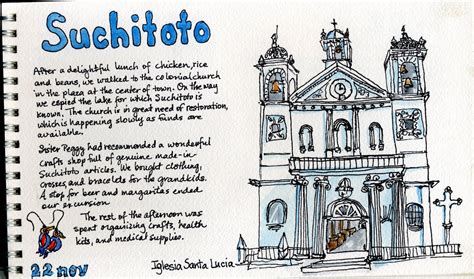 Suchitoto
After a delightful lunch of chicken, rice
and beans, we walked to the colonial church
in the plaza at the center of town. On the way
we espied the lake for which Suchitoto is
known. The church is in great need of restoration,
which is happening slowly as funds are
available.
Sister Peggy had recommended a wonderful
crafts shop full of genuine made-in
Suchitoto articles. We bought clothing,
crosses, and bracelets for the grandkids.
A stop for beer and margaritas ended
our excursion.
The rest of the afternoon was
spent organizing crafts, health
kits, and medical supplies.
22 nov
Iglesia Santa Lucia